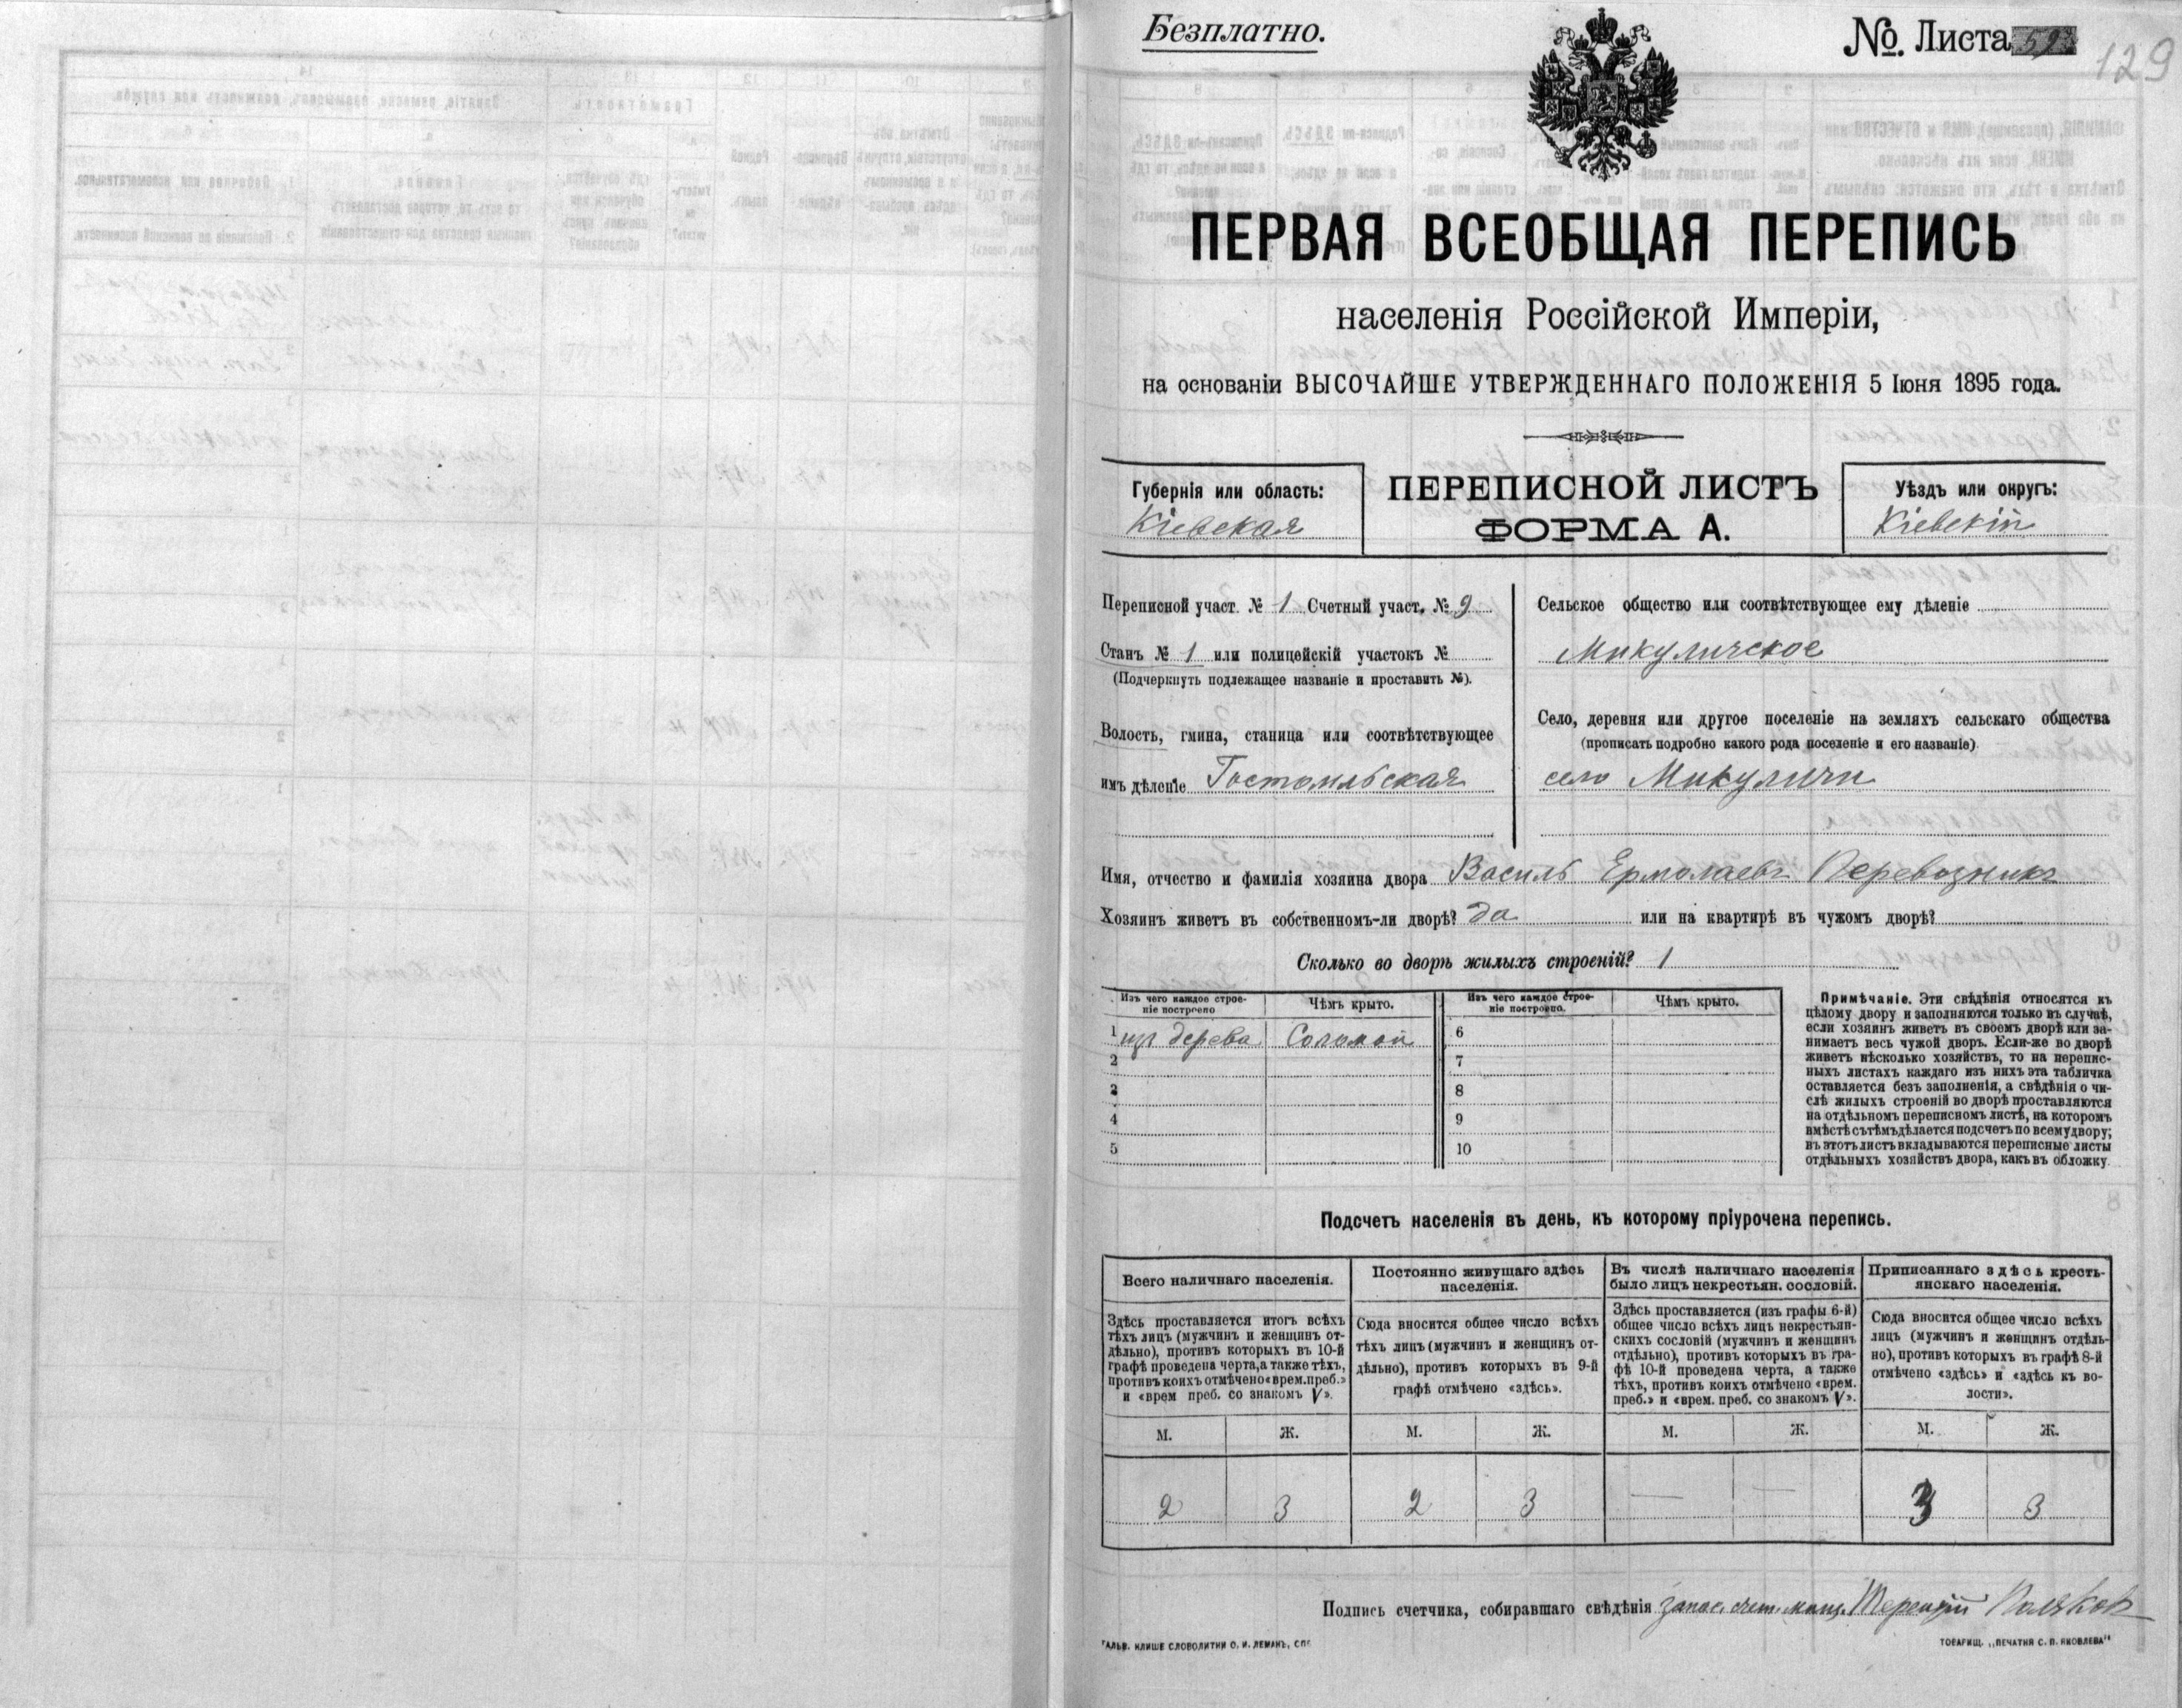 Безплатно.
№. Листа
129
ПЕРВАЯ ВСЕОБЩАЯ ПЕРЕПИСЬ
населенія Россійской Имперіи,
на основаніи ВЫСОЧАЙШЕ УТВЕРЖДЕННАГО ПОЛОЖЕНІЯ 5 Іюня 1895 года.
Губернія или область:
Кіевская
ПЕРЕПИСНОЙ ЛИСТЪ
ФОРМА А.
Уѣздъ или округъ:
Кіевскій
Переписной участ. № 1 Счетный участ. № 9
Станъ № 1 или полицейскій участокъ №
(Подчеркнуть подлежащее названіе и проставить №).
Волость, гмина, станица или соотвѣтствующее
имъ дѣленіе Гостомльская
Сельское общество или соотвѣтствующее ему дѣленіе
Микуличское
Село, деревня или другое поселеніе на земляхъ сельскаго общества
(прописать подробно какого рода поселеніе и его названіе)
село Микуличи
Имя, отчество и фамилія хозяина двора Василь Ермолаевъ Перевозникъ
Хозяинъ живетъ въ собственномъ-ли дворѣ? да или на квартирѣ въ чужомъ дворѣ?
Сколько во дворѣ жилыхъ строеній? 1
Изъ чего каждое строе-
ніе построено
Чѣмъ крыто.
Изъ чего каждое строе-
ніе построено.
Чѣмъ крыто.
1 изъ дерева Соломой 6
2 7
3 8
4 9
5 10
Примѣчаніе. Эти свѣдѣнія относятся къ
цѣлому двору и заполняются только въ случаѣ,
если хозяинъ живетъ въ своемъ дворѣ или за-
нимаетъ весь чужой дворъ. Если-же во дворѣ
живетъ нѣсколько хозяйствъ, то на перепис-
ныхъ листахъ каждаго изъ нихъ эта табличка
оставляется безъ заполненія, а свѣдѣнія о чи-
слѣ жилыхъ строеній во дворѣ проставляются
на отдѣльномъ переписномъ листѣ, на которомъ
вмѣстѣ съ тѣмъ дѣлается подсчетъ по всему двору;
въ этотъ листъ вкладываются переписные листы
отдѣльныхъ хозяйствъ двора, какъ въ обложку.
Подсчетъ населенія въ день, къ которому пріурочена перепись.
Всего наличнаго населенія.
Здѣсь проставляется итогъ всѣхъ
тѣхъ лицъ (мужчинъ и женщинъ от-
дѣльно), противъ которыхъ въ 10-й
графѣ проведена черта, а также тѣхъ,
противъ коихъ отмѣчено «врем. преб.»
и «врем преб. со знакомъ V».
Постоянно живущаго здѣсь
населенія.
Сюда вносится общее число всѣхъ
тѣхъ лицъ (мужчинъ и женщинъ от-
дѣльно), противъ которыхъ въ 9-й
графѣ отмѣчено «здѣсь».
Въ числѣ наличнаго населенія
было лицъ некрестьян. сословій.
Здѣсь проставляется (изъ графы 6-й)
общее число всѣхъ лицъ некрестьян-
скихъ сословій (мужчинъ и женщинъ
отдѣльно), противъ которыхъ въ гра-
фѣ 10-й проведена черта, а также
тѣхъ, противъ коихъ отмѣчено «врем.
преб.» и «врем. преб. со знакомъ V».
Приписаннаго здѣсь кресть-
янскаго населенія.
Сюда вносится общее число всѣхъ
лицъ (мужчинъ и женщинъ отдѣль-
но), противъ которыхъ въ графѣ 8-й
отмѣчено «здѣсь» и «здѣсь къ во-
лости».
М. Ж. М. Ж. М. Ж. М. Ж.
2 3 2 3 — — 3 3
Подпись счетчика, собиравшаго свѣдѣнія запас. счет. Терентій Поляков
ГАЛЬВ. КЛИШЕ СЛОВОЛИТНИ О. И. ЛЕМАНЪ, СПБ
ТОВАРИЩ. „ПЕЧАТНЯ С. П. ЯКОВЛЕВА"